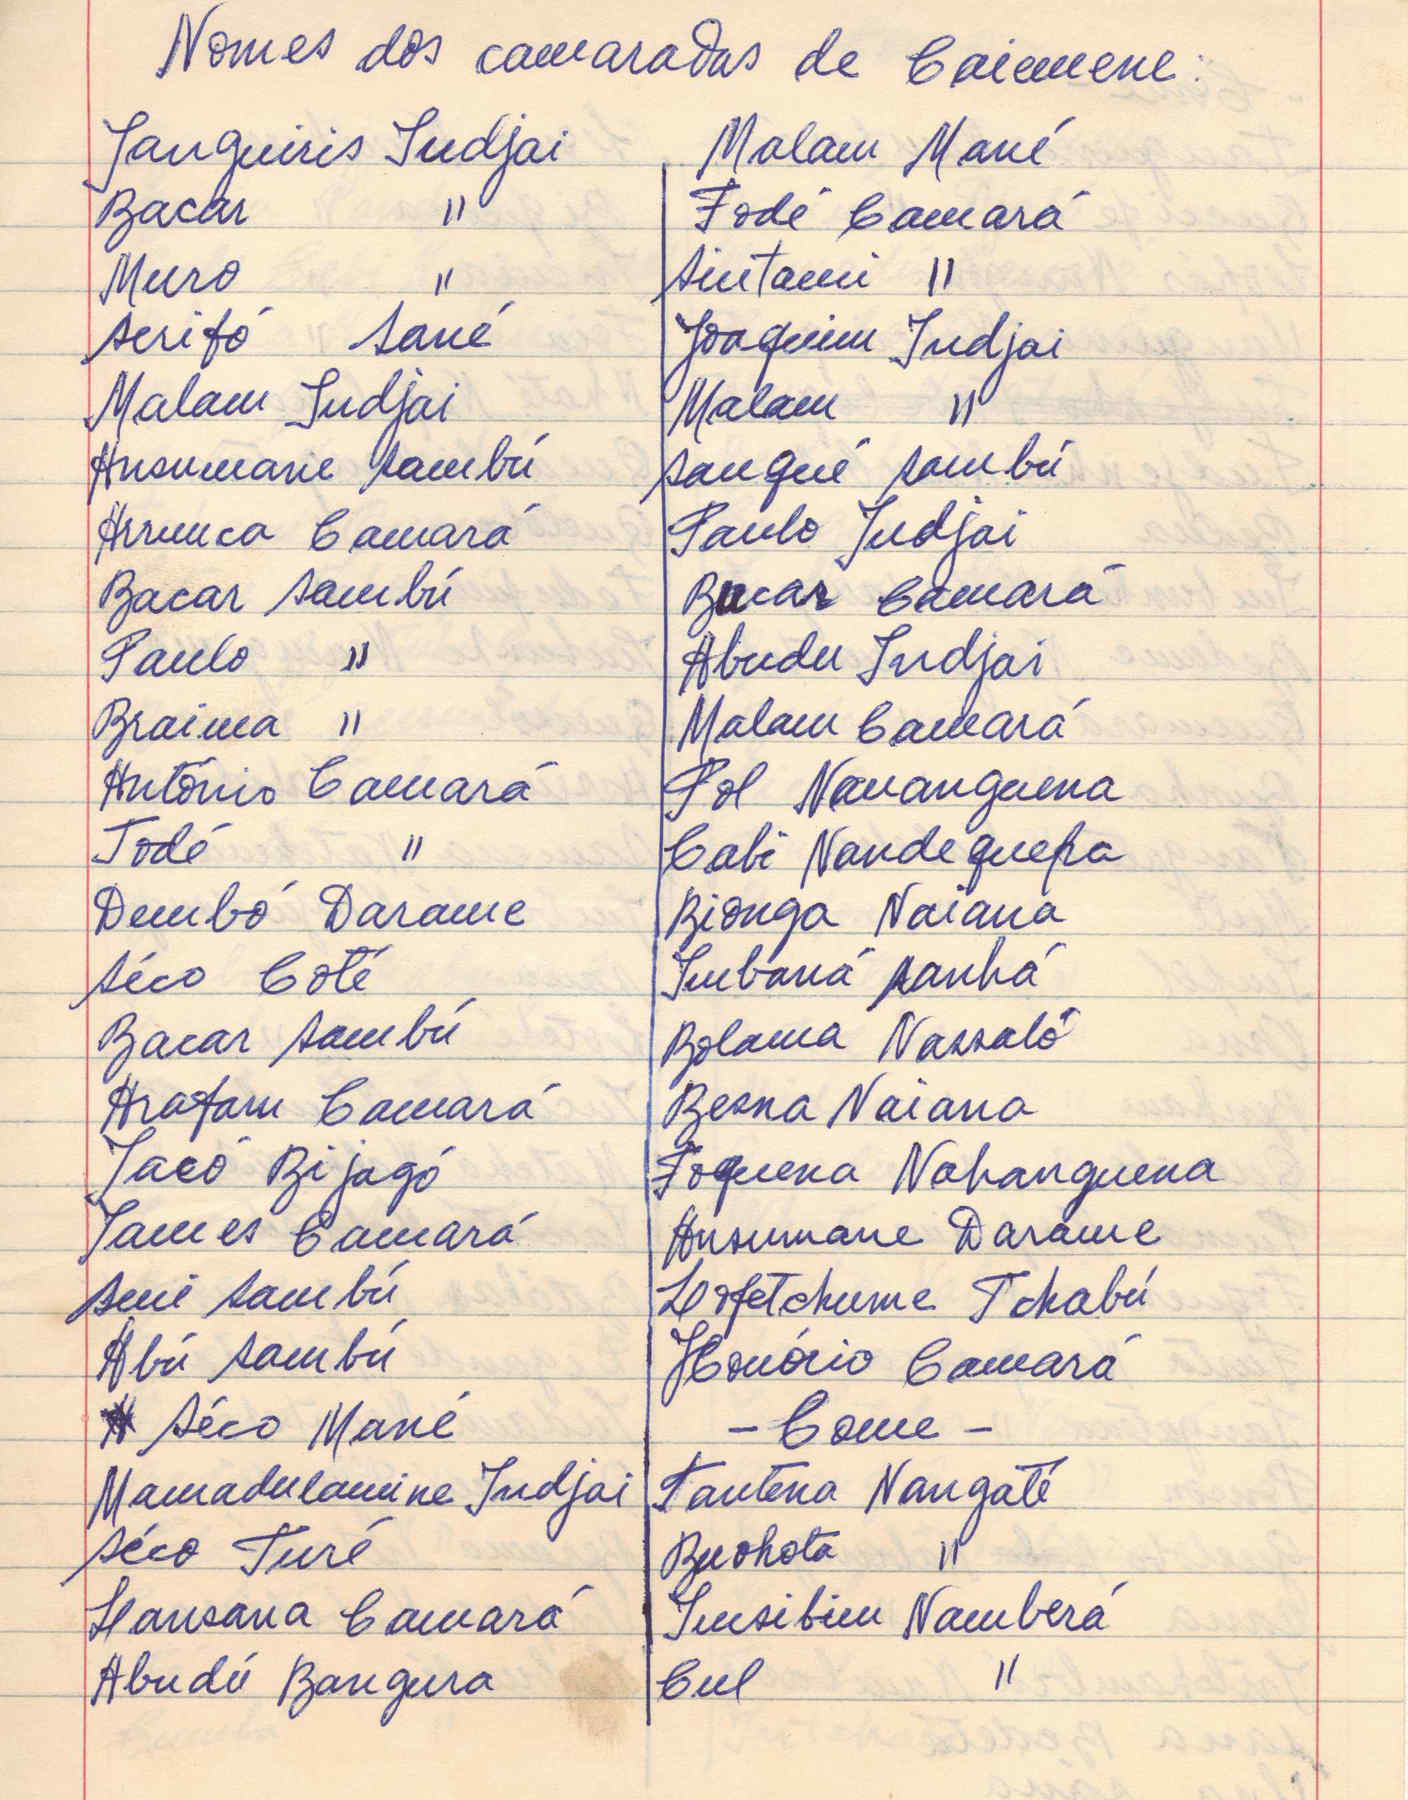 Nomes dos camaradas de Caiomene:
Janguiris Indjai
Bacar "
Muro "
Serifó Sané
Malam Indjai
Ansumane Sambú
Arunca Camará
Bacar Sambú
Paulo "
Braima "
António Camará
Fodé "
Dembó Darame
Séco Coté
Bacar Sambú
Arafam Camará
Jacó Bijagó
James Camará
Seni Sambú
Abú Sambú
Séco Mané
Mamadulamine Indjai
Séco Turé
Lansana Camará
Abudú Bangura
Malam Mané
Fodé Camará
Sintami "
Joaquim Indjai
Malam "
Sangué Sambú
Paulo Indjai
Bacar Camará
Abudu Indjai
Malam Camará
Pol Nananguena
Cabi Nandequepa
Bionga Naiana
Imbaná Sanhá
Bolama Nassaló
Besna Naiana
Foquena Nahanguena
Ansumane Darame
Loftchume Tchabú
Honório Camará
- Come -
Fantena Nangaté
Buohota "
Insibim Namberá
Cul "